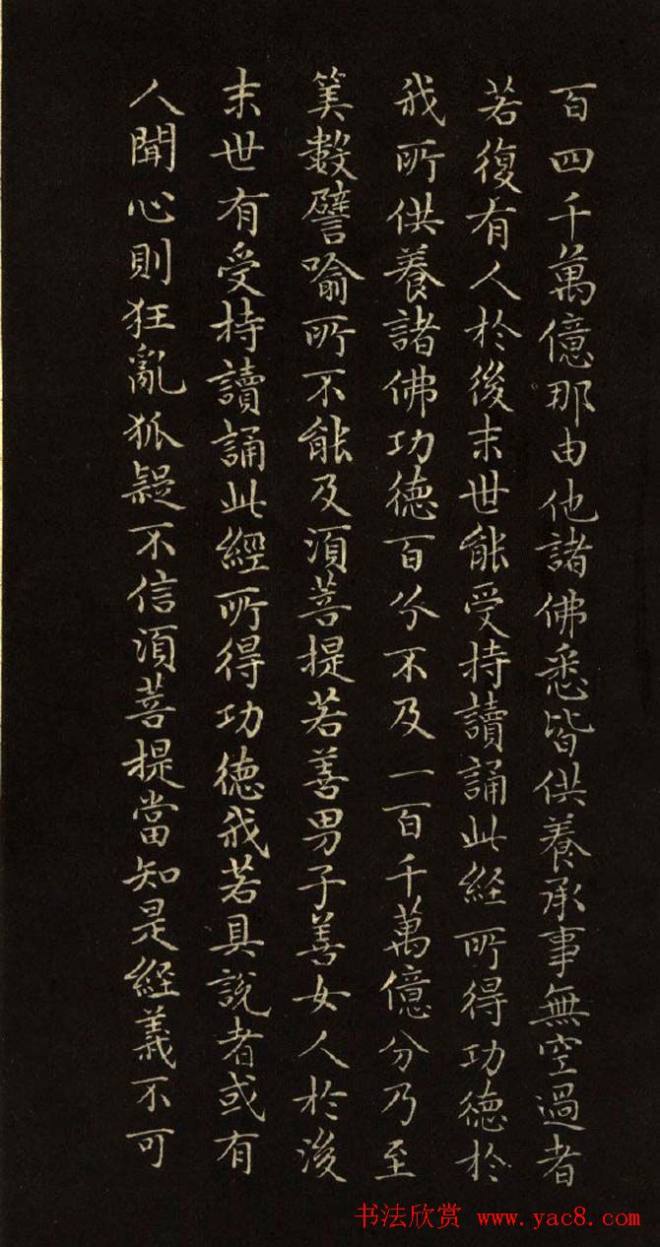 百四千萬億那由他諸佛悉皆供養承事無空過者
若復有人於後末世能受持讀誦此経所得功德於
我所供養諸佛功德百分不及一百千萬億分乃至
筭數譬喻所不能及須菩提若善男子善女人於後
末世有受持讀誦此經所得功德我若具說者或有
人聞心則狂亂狐疑不信須菩提當知是經義不可
书法欣赏 www.yac8.com